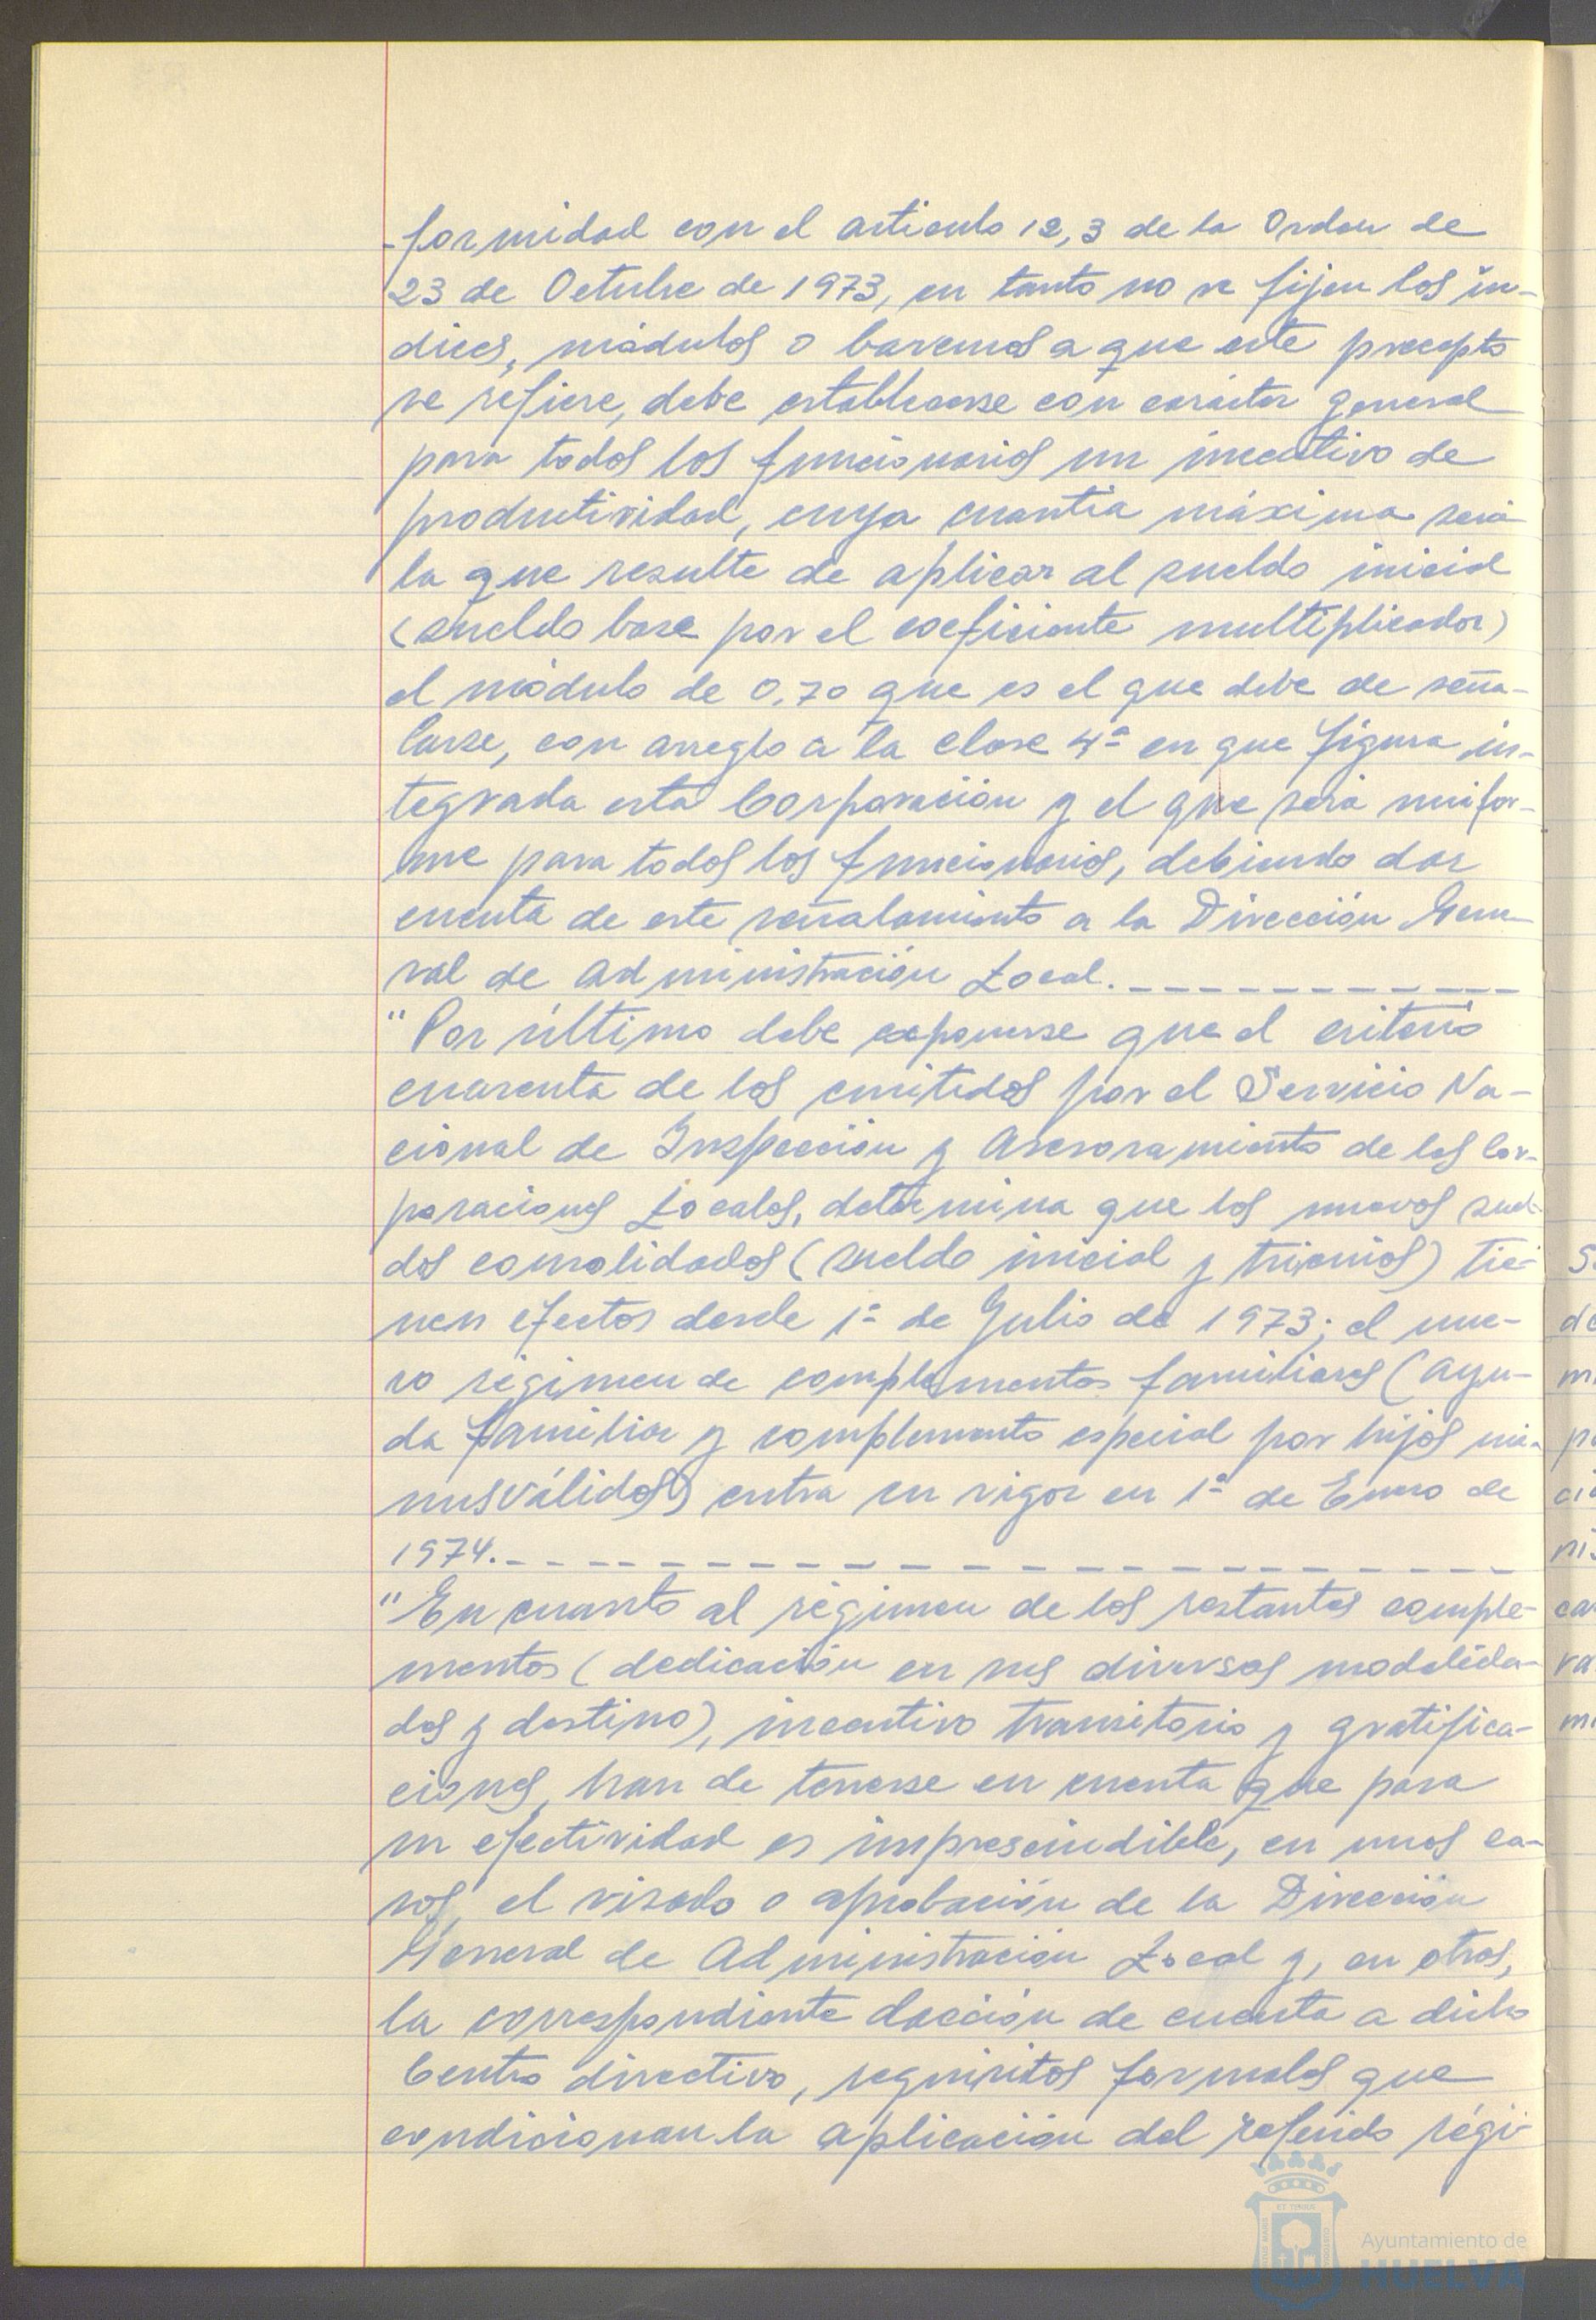 -formidad con el articulo 12,3 de la Orden de
23 de Octubre de 1973, en tanto no se fijen los ín-
dices, módulos o baremos a que este precepto
se refiere, debe establecerse con carácter general
para todos los funcionarios un incentivo de
productividad, cuya cuantía máxima será
la que resulte de aplicar al sueldo inicial
(sueldo base por el coeficiente multiplicador)
el módulo de 0,70 que es el que debe de seña-
larse, con arreglo a la clase 4ª en que figura in-
tegrada esta Corporación y el que será unifor-
me para todos los funcionarios, debiendo dar
cuenta de este señalamiento a la Dirección Gene-
ral de Administración Local.
"Por último debe exponerse que el criterio
cuarenta de los emitidos por el Servicio Na-
cional de Inspección y Asesoramiento de las Cor-
poraciones Locales, determina que los nuevos suel-
dos consolidados (sueldo inicial y trienios) tie-
nen efectos desde 1º de Julio de 1973; el nue-
vo régimen de complementos familiares (ayu-
da familiar y complemento especial por hijos mi-
nusválidos) entra en vigor en 1º de Enero de
1974.
"En cuanto al régimen de los restantes comple-
mentos (dedicación en sus diversas modalida-
des y destino), incentivo transitorio y gratifica-
ciones, han de tenerse en cuenta que para
su efectividad es imprescindible, en unos ca-
sos, el visado o aprobación de la Dirección
General de Administración Local y, en otros,
la correspondiente dación de cuenta a dicho
Centro directivo, requisitos formales que
condicionan la aplicación del referido régi-
Ayuntamiento de
HUELVA